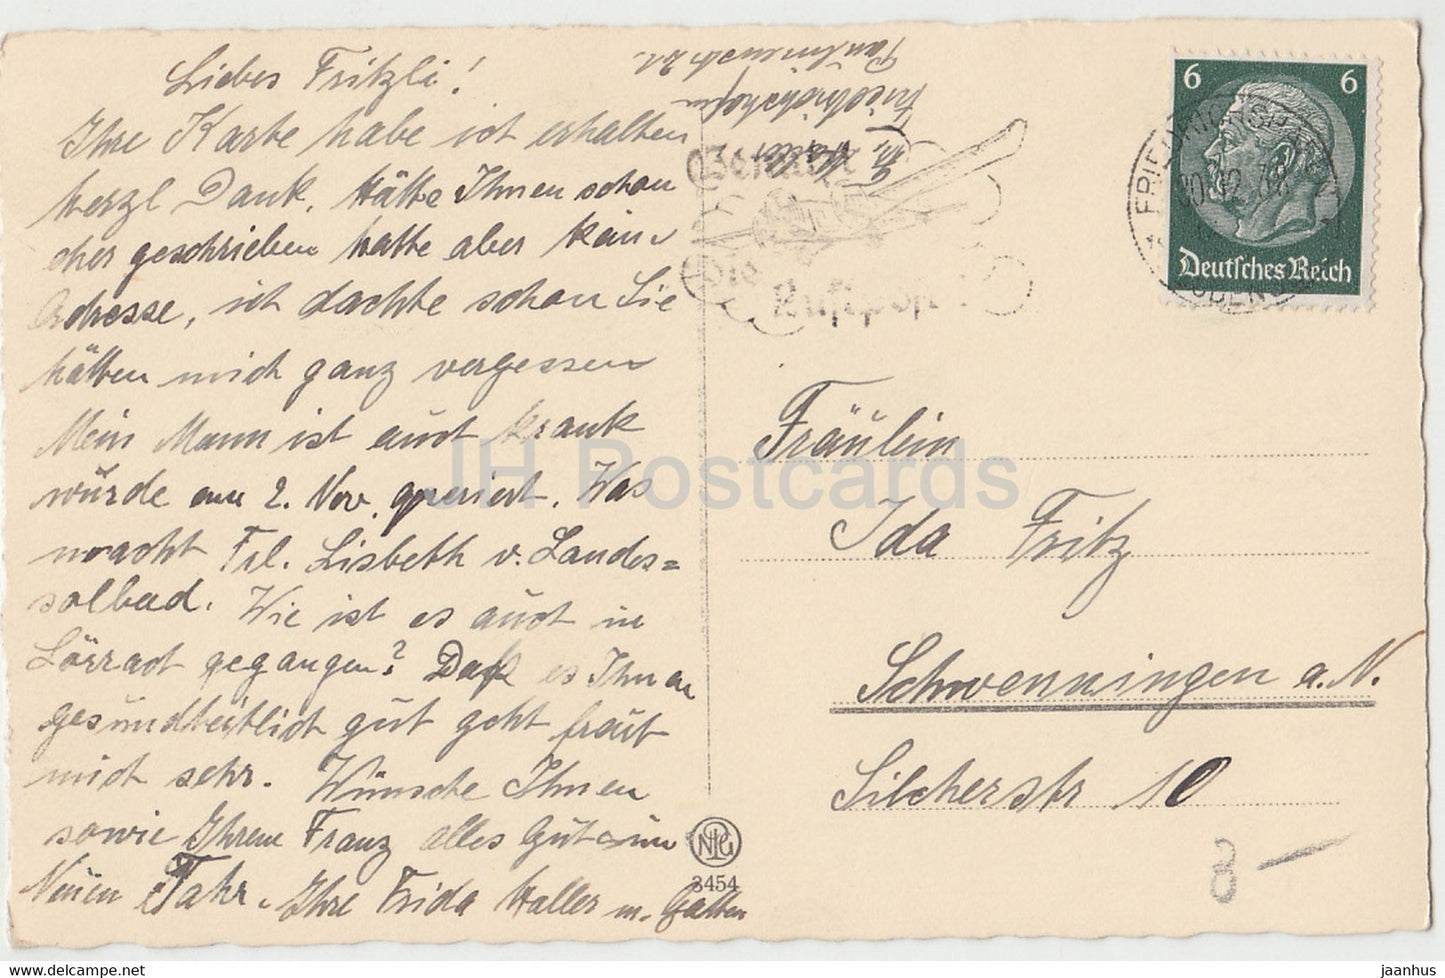 Liebes Fritzli!
Ihre Karte habe ich erhalten
herzl Dank. Hätte Ihnen schon
eher geschrieben hatte aber kein
Adresse, ich dachte schon Sie
hätten mich ganz vergessen
Mein Mann ist auch krank
würde am 2. Nov. operiert. Was
macht Frl. Lisbeth v. Landes=
solbad. Wie ist es auch in
Lörrach gegangen? Daß es Ihnen
gesundheitlich gut geht freut
mich sehr. Wünsche Ihnen
sowie Ihrem Franz alles Gute im
Neuen Jahr. Ihre Frida Haller m. Gatten
Haller
Friedrichshafen
6 6
Deutsches Reich
FRIEDRICHSHAFEN
Die
Luftpost
Fräulein
Ida Fritz
Schwenningen a. N.
Silcherstr 10
3454
8 –
JH Postcards
https://www.delcampe.net/en_US/collectibles/user/jaanhus